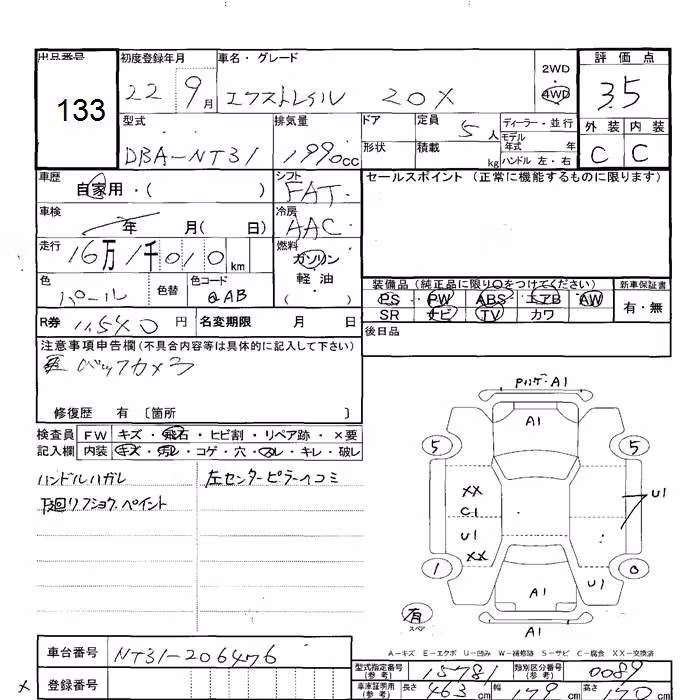 出品番号 初度登録年月 車名・グレード 2WD 評価点
133 22 9月 エクストレイル 20X 4WD 3.5
型式 排気量 ドア 定員 5人 ディーラー・並行 外装 内装
DBA-NT31 1990cc 形状 積載 kg モデル年式 年 C C
ハンドル 左・右
車歴 自家用・( ) シフト FAT セールスポイント (正常に機能するものに限ります)
車検 年 月( 日) 冷房 AAC
走行 16万1千010km 燃料 ガソリン
色 パール 色替 色コード QAB 軽油 ( )
装備品 (純正品に限り○をつけてください) 新車保証書
PS PW ABS エアB AW 有・無
SR ナビ TV カワ
R券 11,540円 名変期限 月 日 後日品
注意事項申告欄(不具合内容等は具体的に記入して下さい)
バックカメラ
修復歴 有 〔箇所 〕
検査員 FW キズ・飛石・ヒビ割・リペア跡・×要
記入欄 内装 キズ・汚レ・コゲ・穴・スレ・キレ・破レ
ハンドルハガレ 左センターピラーヘコミ
下廻リフショク、ペイント
A1
A1
5 5
XX
C1 U1
U1
XX
1 0
A1 U1
有
スペア
A1
A-キズ E-エクボ U-凹み W-補修跡 S-サビ C-腐食 XX-交換済
車台番号 NT31-206476
型式指定番号(参考) 15781 類別区分番号(参考) 0089
× 登録番号
車庫証明用(参考) 長さ 463cm 幅 179cm 高さ 170cm